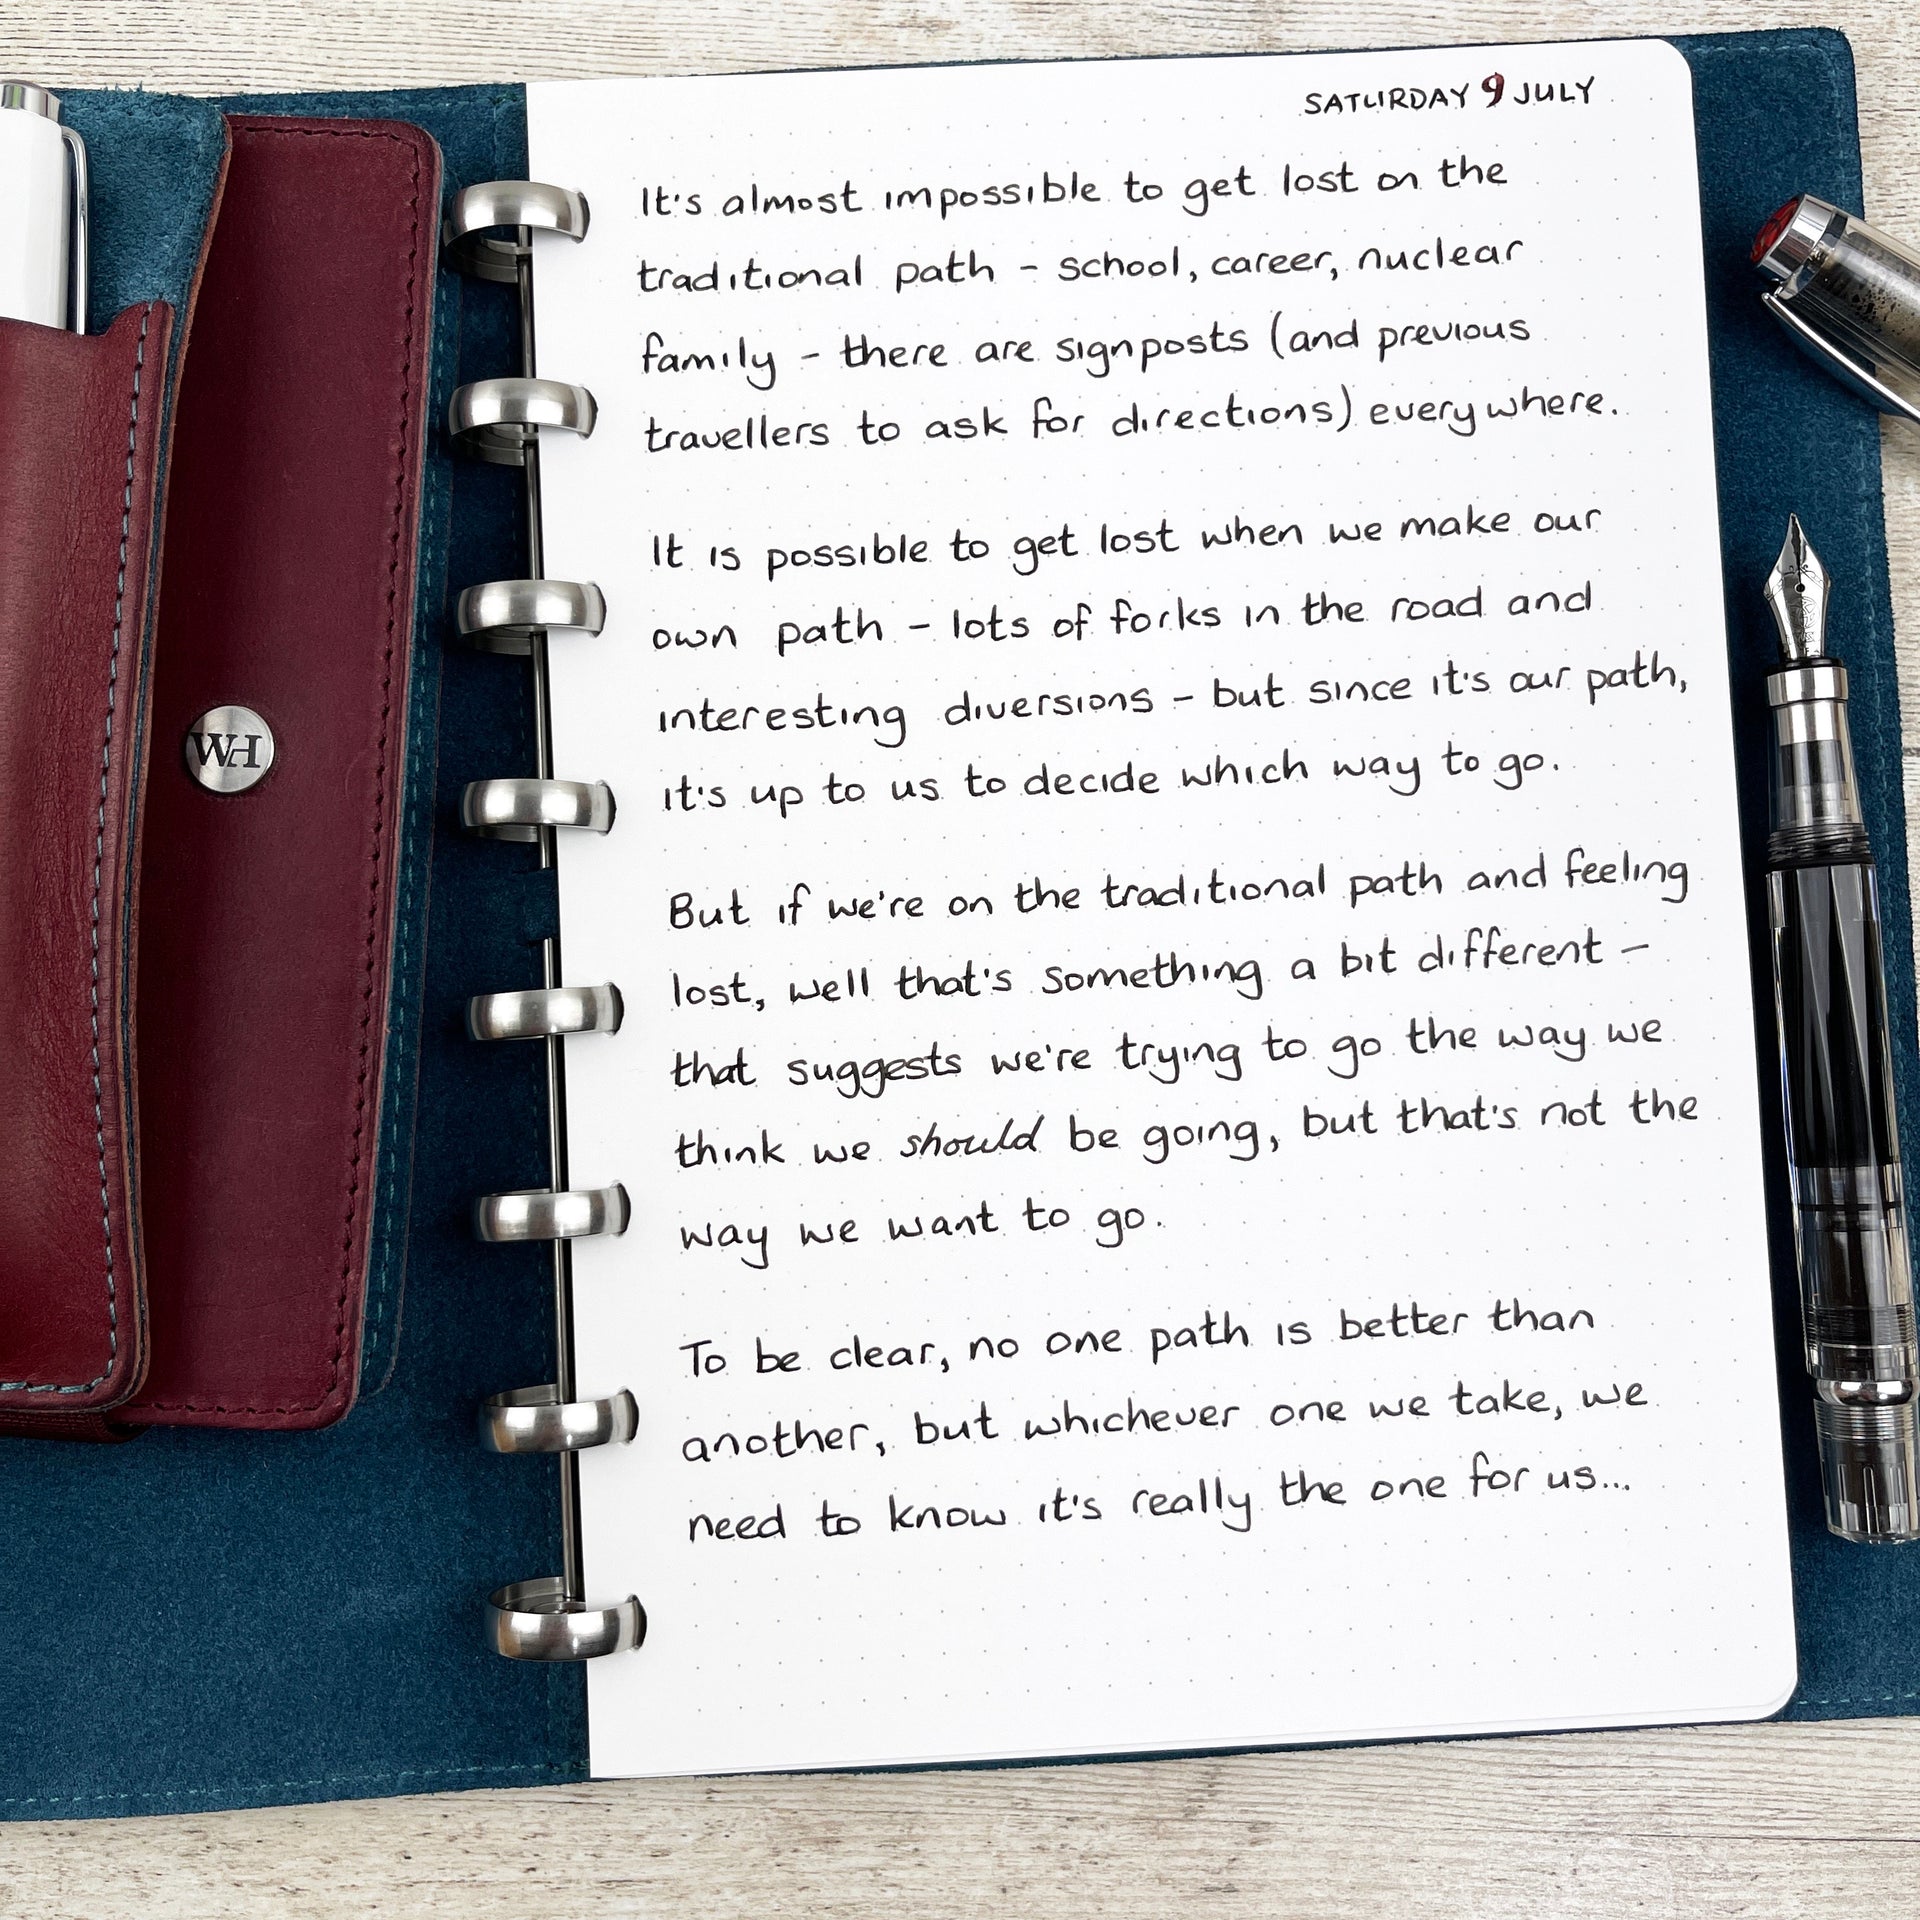 SATURDAY 9 JULY
It's almost impossible to get lost on the
traditional path - school, career, nuclear
family - there are signposts (and previous
travellers to ask for directions) everywhere.
It is possible to get lost when we make our
own path - lots of forks in the road and
interesting diversions - but since it's our path,
it's up to us to decide which way to go.
But if we're on the traditional path and feeling
lost, well that's something a bit different -
that suggests we're trying to go the way we
think we should be going, but that's not the
way we want to go.
To be clear, no one path is better than
another, but whichever one we take, we
need to know it's really the one for us...
WH